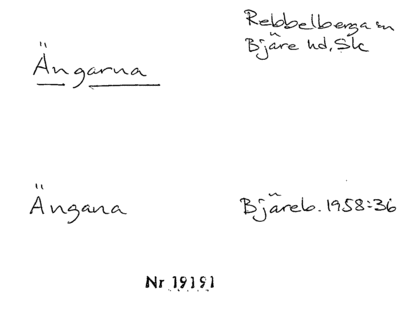 Rebbelberga sn
Ängarna Bjäre hd, Sk
Ängana Bjäreb. 1958:36
Nr 19191